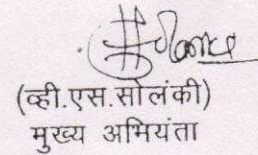 (व्ही.एस.सोलंकी)
मुख्य अभियंता